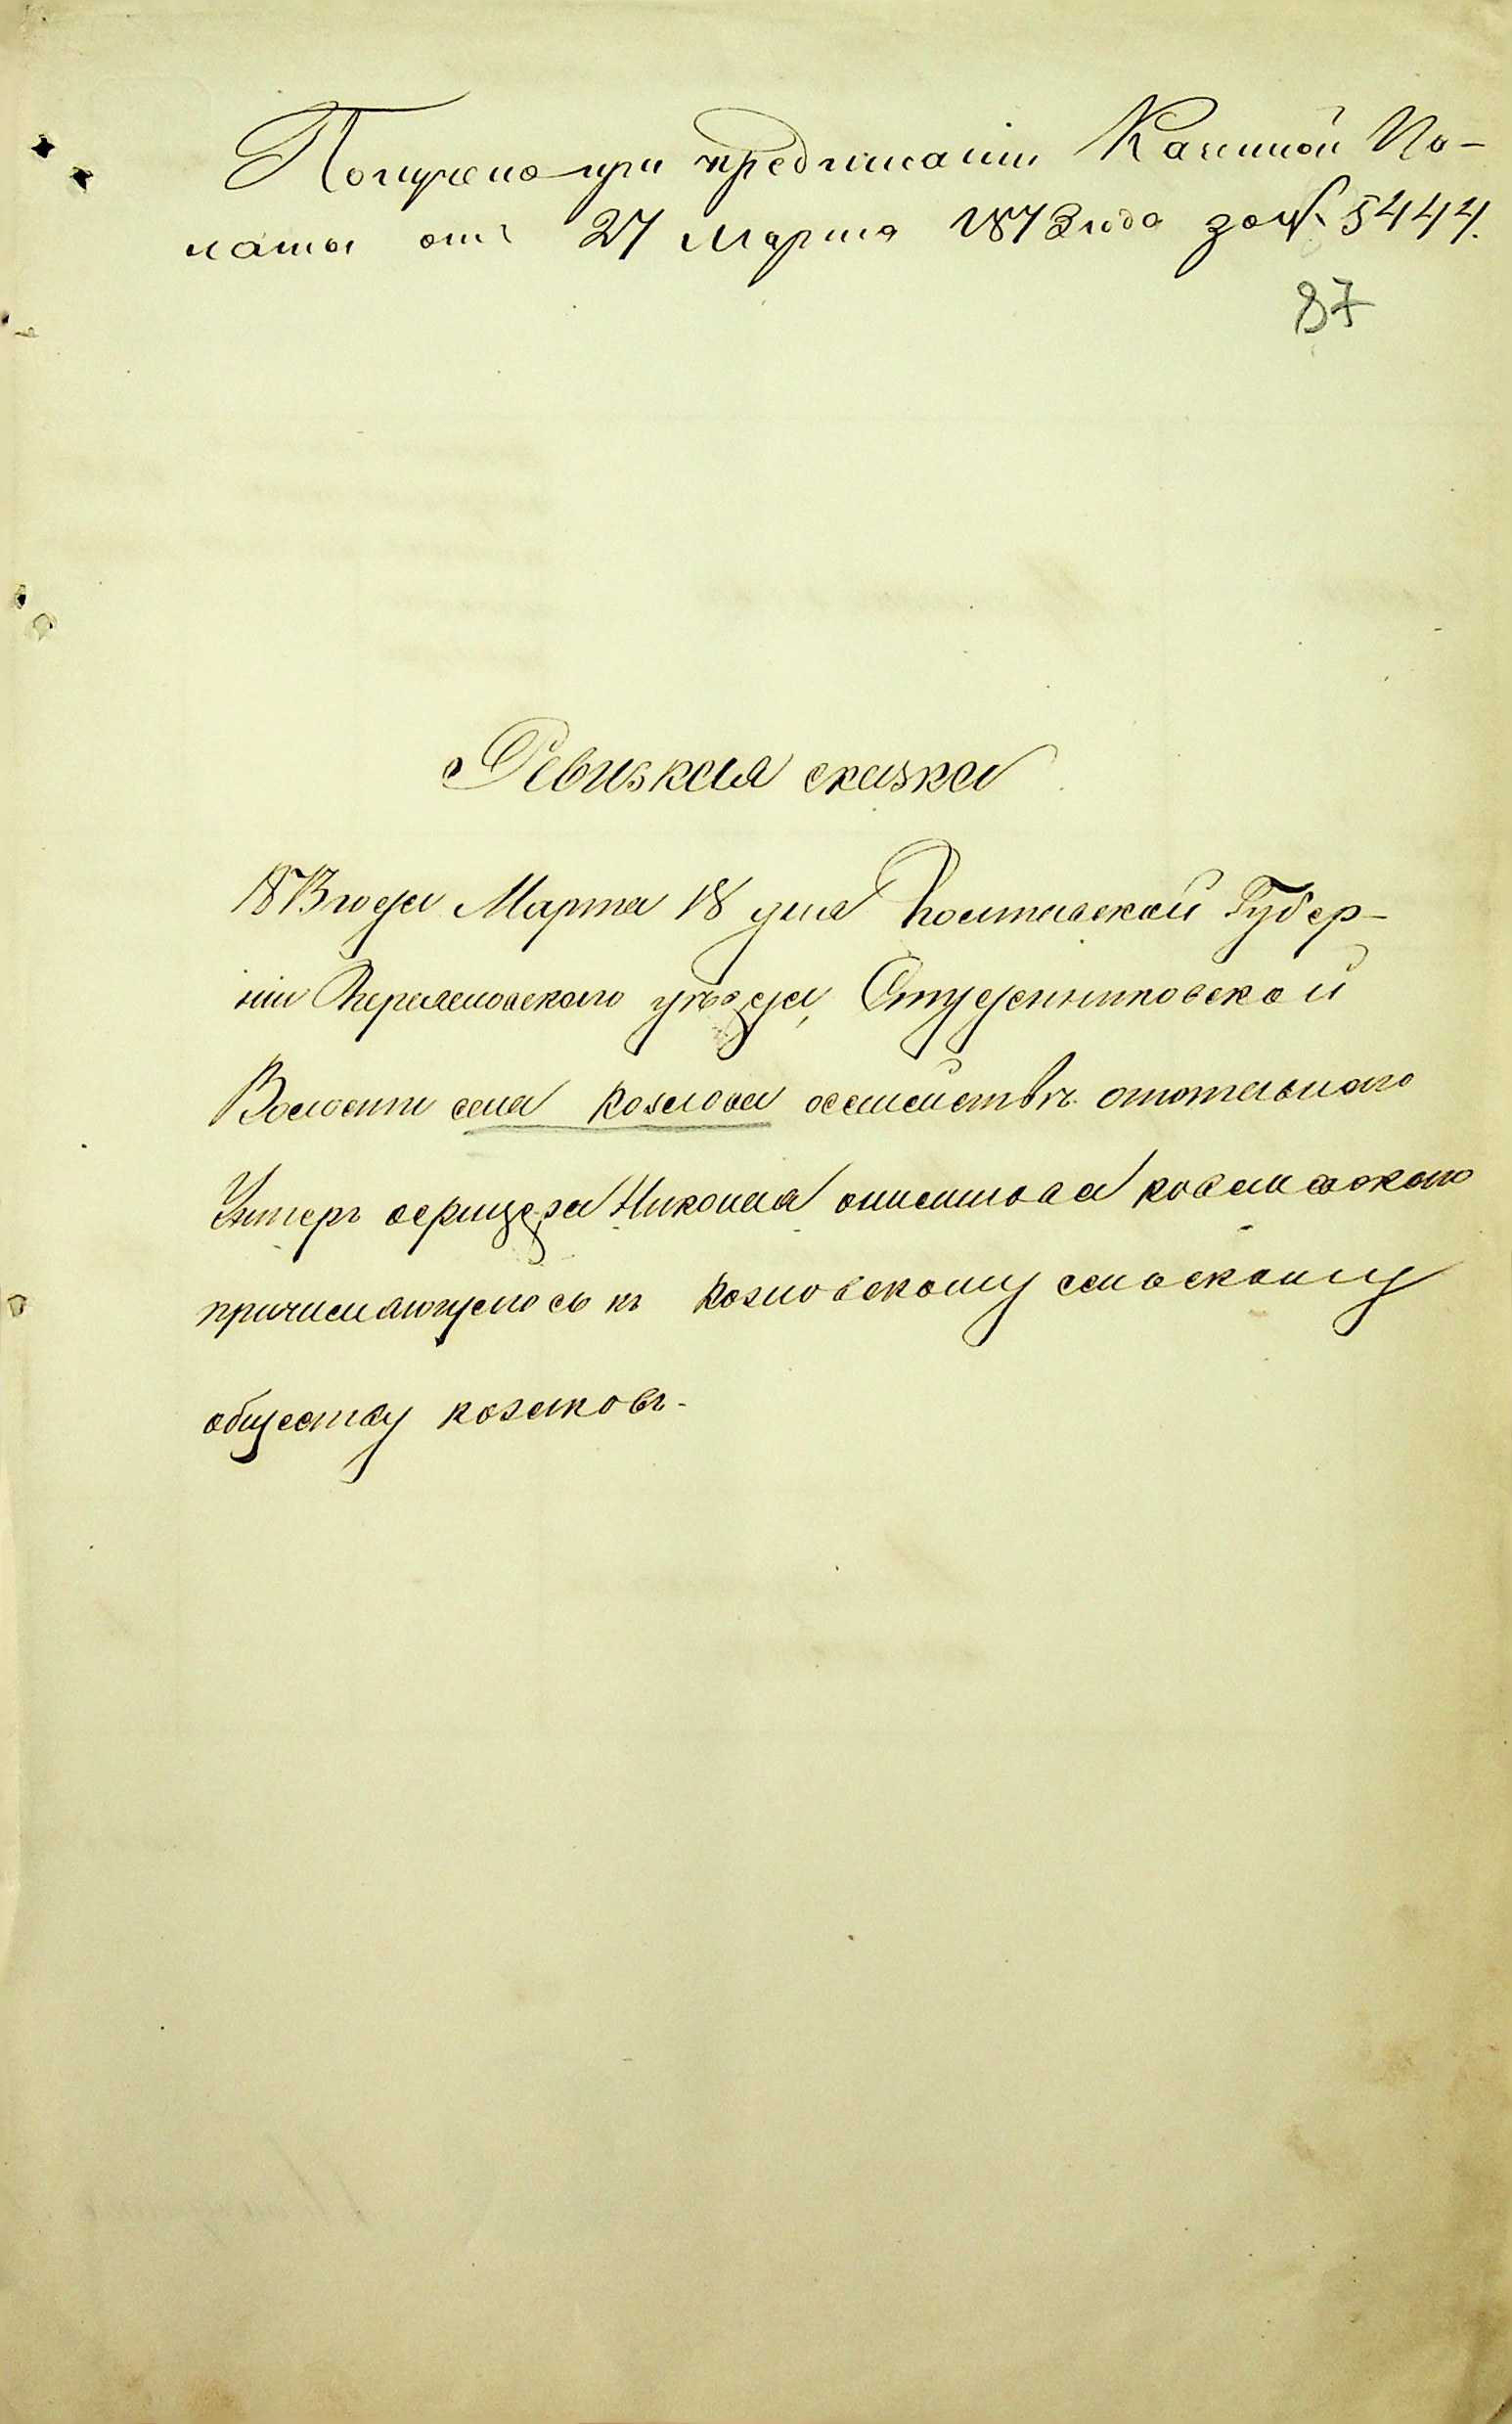 Получено при предписаніи Казенной Па-
латы отъ 27 Марта 1873 года за № 5444.
87
Ревизкая сказка
1873 года Марта 18 дня Полтавской Губер-
ніи Переяславского уѣзда, Студениковской
Волости села Козлова осемействѣ отставного
Унтеръ офицера Николая
причисляющегось къ Козловскому сельскому
обществу козаковъ.